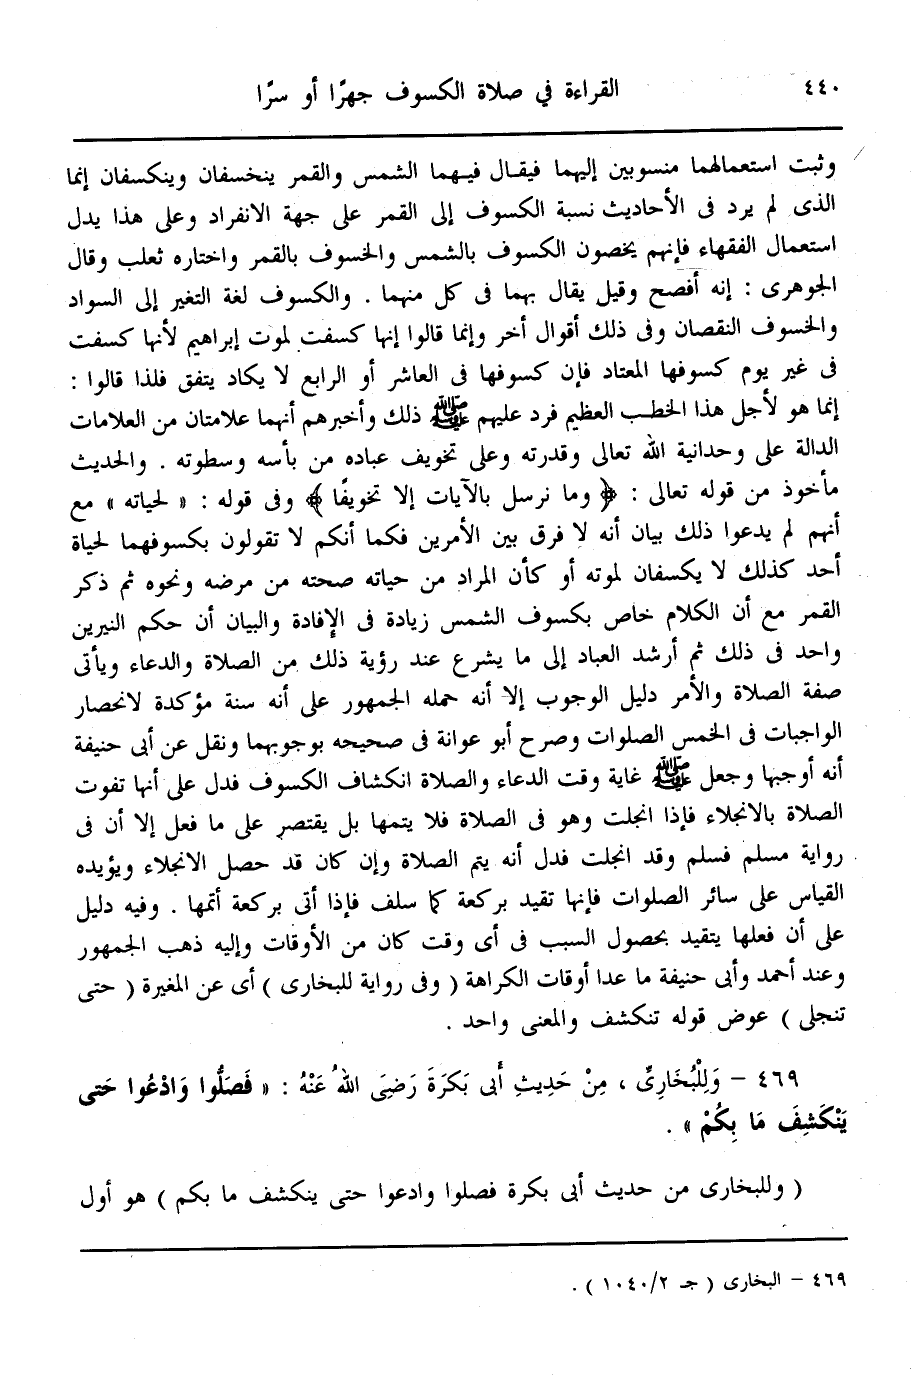 ٤٤٠
القراءة في صلاة الكسوف جهرًا أو سرًّا
وثبت استعمالهما منسوبين إليهما فيقال فيهما الشمس والقمر ينخسفان وينكسفان إنما
الذى لم يرد فى الأحاديث نسبة الكسوف إلى القمر على جهة الانفراد وعلى هذا يدل
استعمال الفقهاء فإنهم يخصون الكسوف بالشمس والخسوف بالقمر واختاره ثعلب وقال
الجوهرى : إنه أفصح وقيل يقال بهما فى كل منهما . والكسوف لغة التغير إلى السواد
والخسوف النقصان وفى ذلك أقوال أخر وإنما قالوا إنها كسفت لموت إبراهيم لأنها كسفت
فى غير يوم كسوفها المعتاد فإن كسوفها فى العاشر أو الرابع لا يكاد يتفق فلذا قالوا :
إنما هو لأجل هذا الخطب العظيم فرد عليهم ﷺ ذلك وأخبرهم أنهما علامتان من العلامات
الدالة على وحدانية الله تعالى وقدرته وعلى تخويف عباده من بأسه وسطوته . والحديث
مأخوذ من قوله تعالى : ﴿ وما نرسل بالآيات إلا تخويفًا ﴾ وفى قوله : « لحياته » مع
أنهم لم يدعوا ذلك بيان أنه لا فرق بين الأمرين فكما أنكم لا تقولون بكسوفهما لحياة
أحد كذلك لا يكسفان لموته أو كأن المراد من حياته صحته من مرضه ونحوه ثم ذكر
القمر مع أن الكلام خاص بكسوف الشمس زيادة فى الإفادة والبيان أن حكم النيرين
واحد فى ذلك ثم أرشد العباد إلى ما يشرع عند رؤية ذلك من الصلاة والدعاء ويأتى
صفة الصلاة والأمر دليل الوجوب إلا أنه حمله الجمهور على أنه سنة مؤكدة لانحصار
الواجبات فى الخمس الصلوات وصرح أبو عوانة فى صحيحه بوجوبهما ونقل عن أبى حنيفة
أنه أوجبها وجعل ﷺ غاية وقت الدعاء والصلاة انكشاف الكسوف فدل على أنها تفوت
الصلاة بالانجلاء فإذا انجلت وهو فى الصلاة فلا يتمها بل يقتصر على ما فعل إلا أن فى
رواية مسلم فسلم وقد انجلت فدل أنه يتم الصلاة وإن كان قد حصل الانجلاء ويؤيده
القياس على سائر الصلوات فإنها تقيد بركعة كما سلف فإذا أتى بركعة أتمها . وفيه دليل
على أن فعلها يتقيد بحصول السبب فى أى وقت كان من الأوقات وإليه ذهب الجمهور
وعند أحمد وأبى حنيفة ما عدا أوقات الكراهة ( وفى رواية للبخارى ) أى عن المغيرة ( حتى
تنجلى ) عوض قوله تنكشف والمعنى واحد .
٤٦٩ – وَلِلْبُخَارِىِّ ، مِنْ حَدِيثِ أَبِى بَكرَةَ رَضِىَ اللهُ عَنْهُ : « فَصَلُّوا وَادْعُوا حَتى
يَنْكَشِفَ مَا بِكُمْ » .
( وللبخارى من حديث أبى بكرة فصلوا وادعوا حتى ينكشف ما بكم ) هو أول
٤٦٩ – البخارى ( جـ ١٠٤٠/٢ ) .